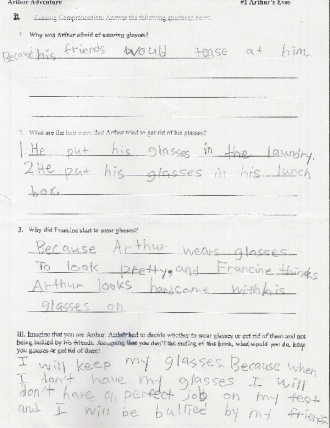 Arthur Adventure #1 Arthur's Eyes
II. Reading Comprehension: Answer the following questions below.
1. Why was Arthur afraid of wearing glasses?
Because his friends would tease at him.
2. What are the two ways that Arthur tried to get rid of his glasses?
1 He put his glasses in the laundry.
2 He put his glasses in his lunch
box.
3. Why did Francine start to wear glasses?
Because Arthur wears glasses
To look pretty, and Francine thinks
Arthur looks handsome with his
glasses on
III. Imagine that you are Arthur. Arthur had to decide whether to wear glasses or get rid of them and not
being bullied by his friends. Assuming that you don't the ending of this book, what would you do, keep
you glasses or get rid of them?
I will keep my glasses. Because when
I don't have my glasses I will
don't have a perfect job on my test
and I will be bullied by my friends